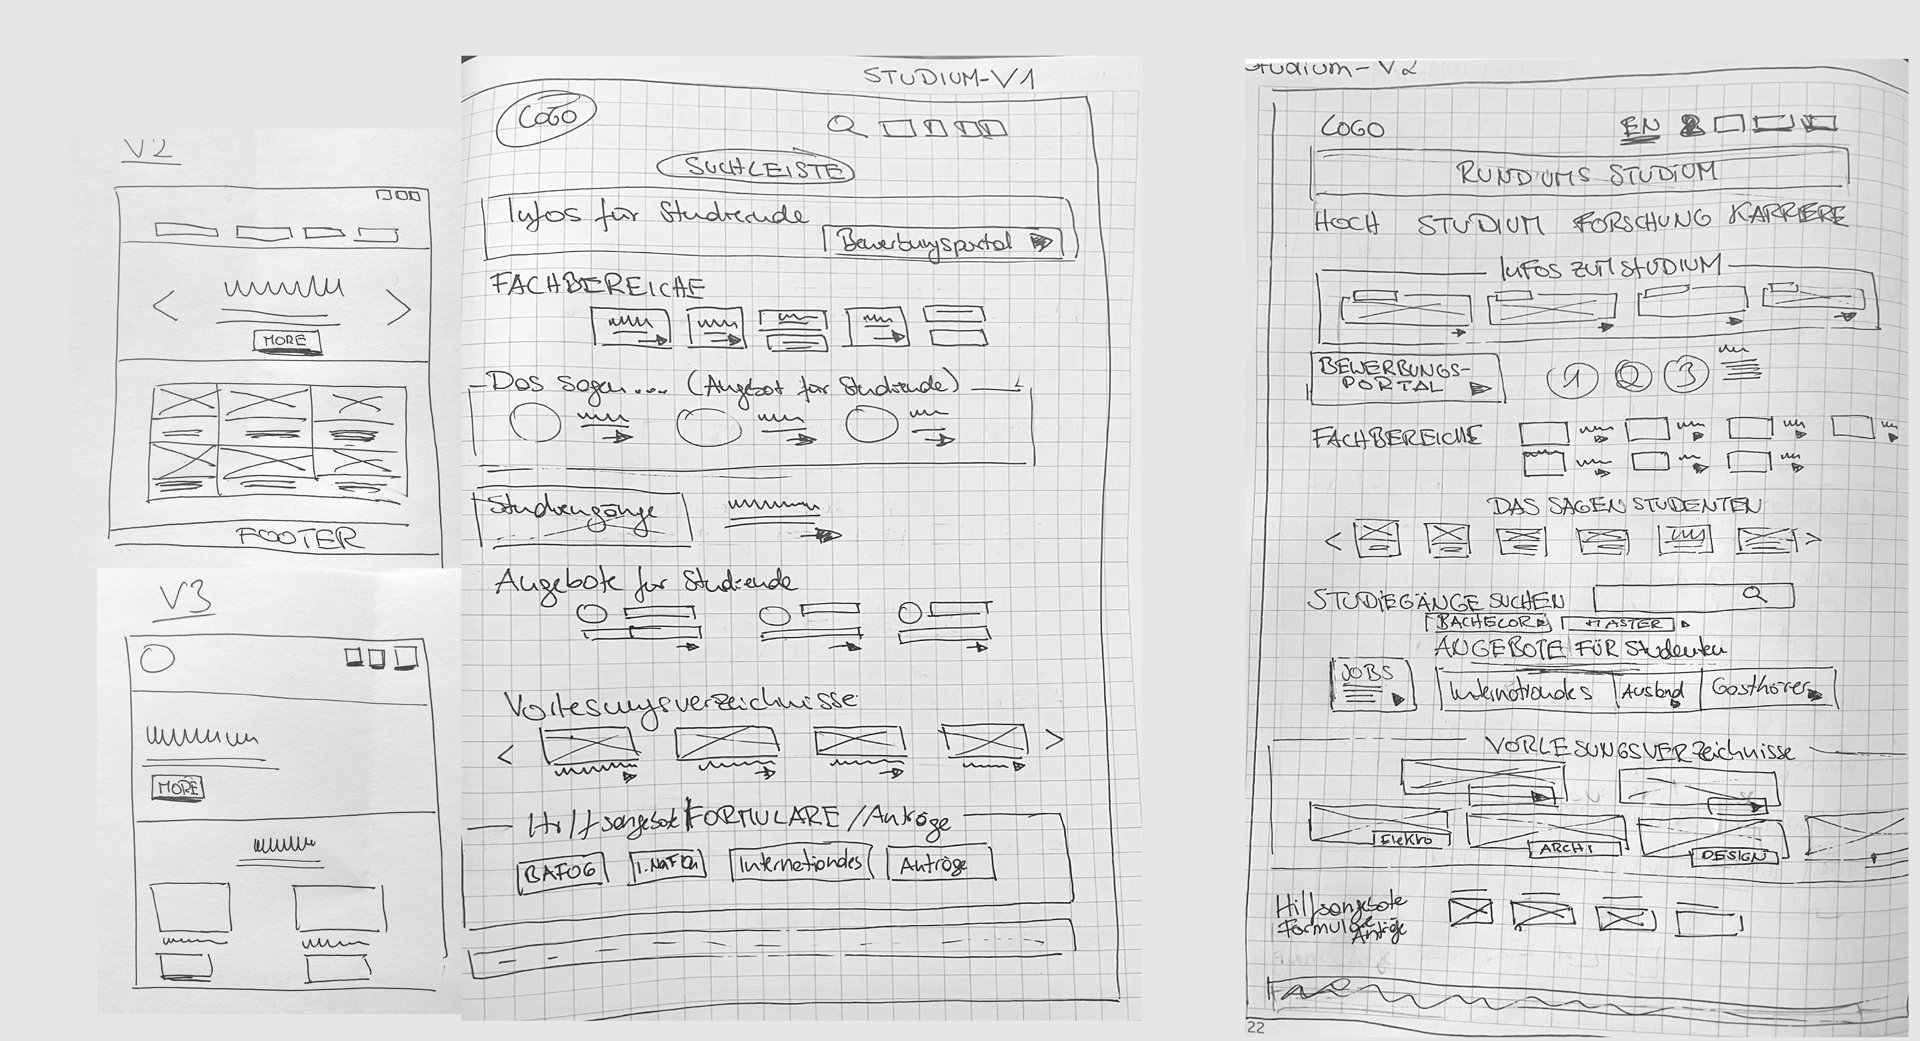 V2
MORE
FOOTER
V3
MORE
STUDIUM-V1
LOGO
SUCHLEISTE
Infos für Studierende
Bewerbungsportal
FACHBEREICHE
Das sagen.... (Angebot für Studierende)
Studiengänge
Angebote für Studierende
Vorlesungsverzeichnisse
Hilfsangebot FORMULARE / Anträge
BAFÖG
Internationales
Anträge
Studium-V2
LOGO EN
RUND UMS STUDIUM
HOCH STUDIUM FORSCHUNG KARRIERE
INFOS ZUM STUDIUM
BEWERBUNGS-
PORTAL
1 2 3
FACHBEREICHE
DAS SAGEN STUDENTEN
< >
STUDIEGÄNGE SUCHEN
BACHELOR MASTER
ANGEBOTE FÜR Studenten
JOBS
Internationales Ausland Gasthörer
VORLESUNGSVERZEICHNISSE
Elektro ARCHI DESIGN
Hilfsangebote
Formulare
Anträge
22